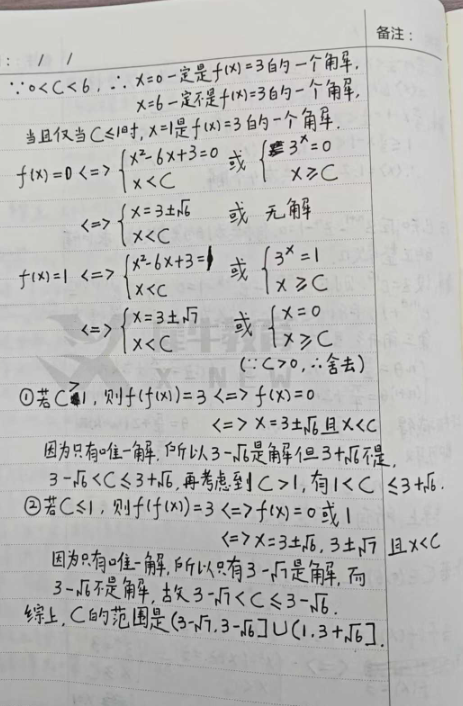 备注：
: / /
∵0<C<6, ∴x=0一定是f(x)=3的一个解,
x=6一定不是f(x)=3的一个解,
当且仅当C≤1时, x=1是f(x)=3的一个解.
f(x)=0 <=> {x²-6x+3=0 或 {3ˣ=0
x<C x≥C
<=> {x=3±√6 或 无解
x<C
f(x)=1 <=> {x²-6x+3=1 或 {3ˣ=1
x<C x≥C
<=> {x=3±√7 或 {x=0
x<C x≥C
(∵C>0, ∴舍去)
①若C>1, 则f(f(x))=3 <=> f(x)=0
<=> x=3±√6 且 x<C
因为只有唯一解, 所以3-√6是解但3+√6不是,
3-√6<C≤3+√6, 再考虑到C>1, 有1<C≤3+√6.
②若C≤1, 则f(f(x))=3 <=> f(x)=0 或 1
<=> x=3±√6, 3±√7 且x<C
因为只有唯一解, 所以只有3-√7是解, 而
3-√6不是解, 故 3-√7<C≤3-√6.
综上, C的范围是(3-√7, 3-√6]∪(1, 3+√6].